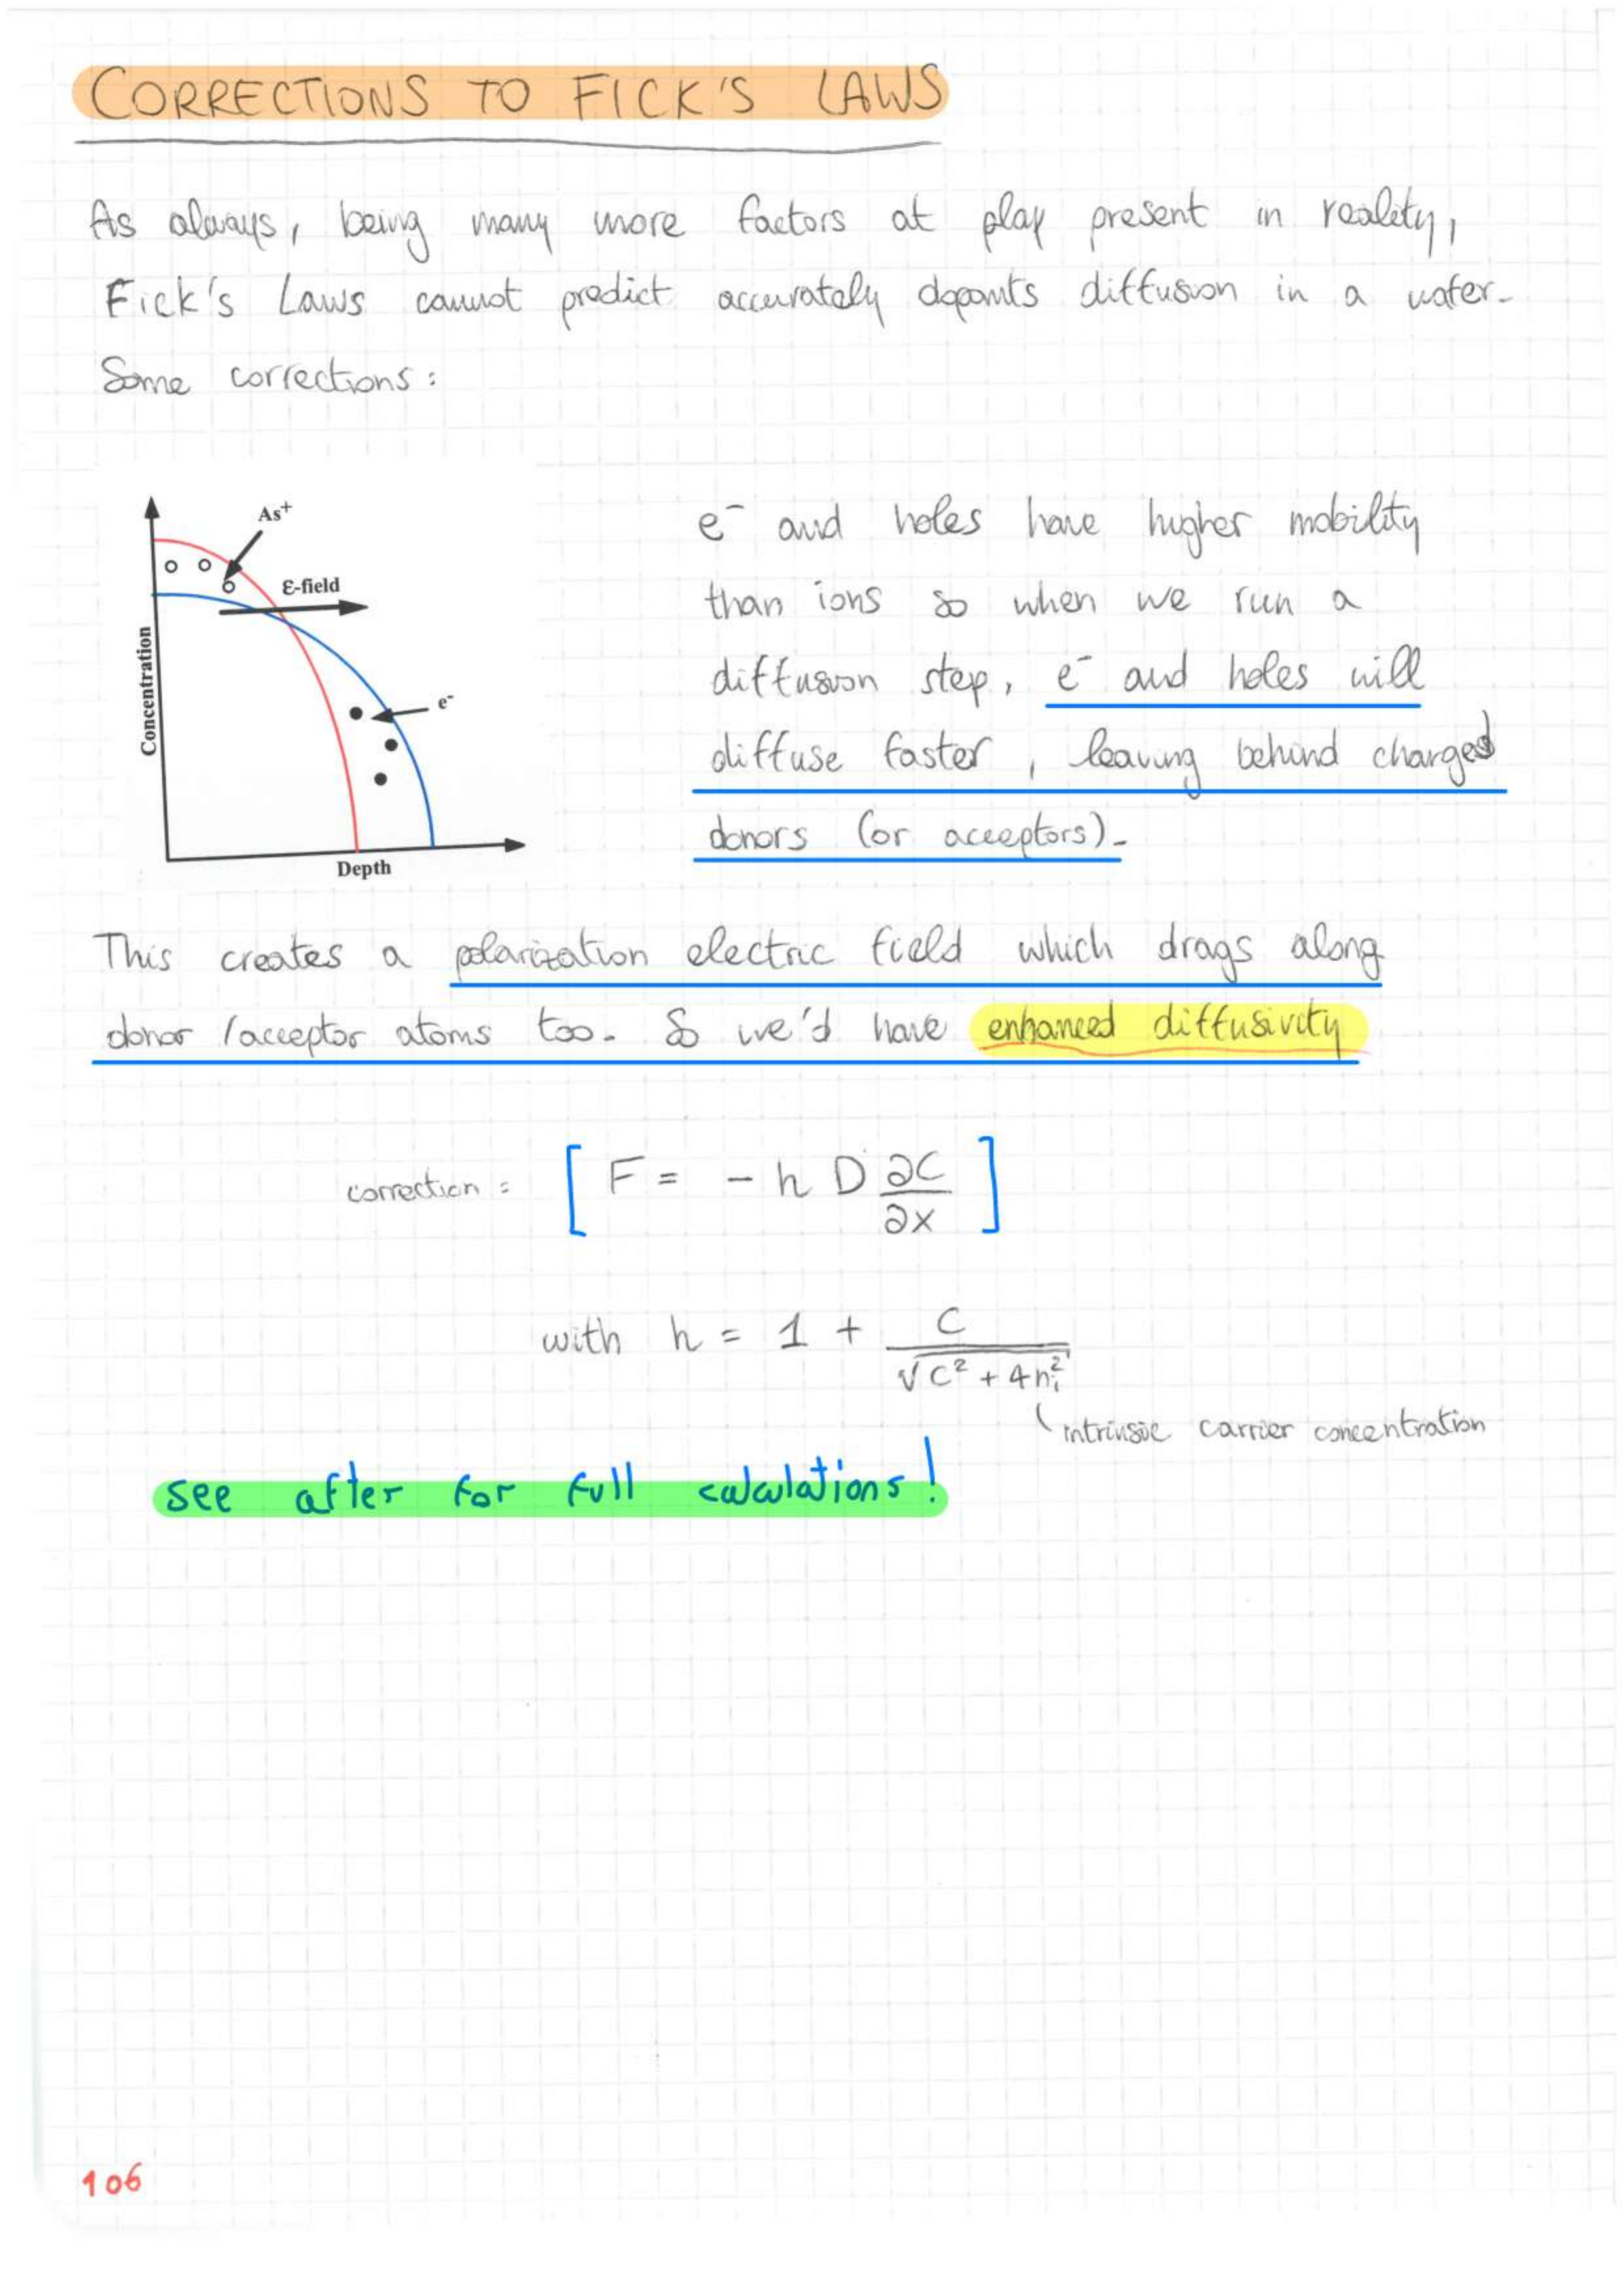 CORRECTIONS TO FICK'S LAWS
As always, being many more factors at play present in reality,
Fick's Laws cannot predict accurately dopants diffusion in a wafer.
Some corrections:
As+
ε-field
e-
Concentration
Depth
e⁻ and holes have higher mobility
than ions so when we run a
diffusion step, e⁻ and holes will
diffuse faster, leaving behind charged
donors (or acceptors).
This creates a polarization electric field which drags along
donor/acceptor atoms too. So we'd have enhanced diffusivity
correction = [ F = - h D ∂C/∂x ]
with h = 1 + C/√(C² + 4nᵢ²)
intrinsic carrier concentration
see after for full calculations!
106